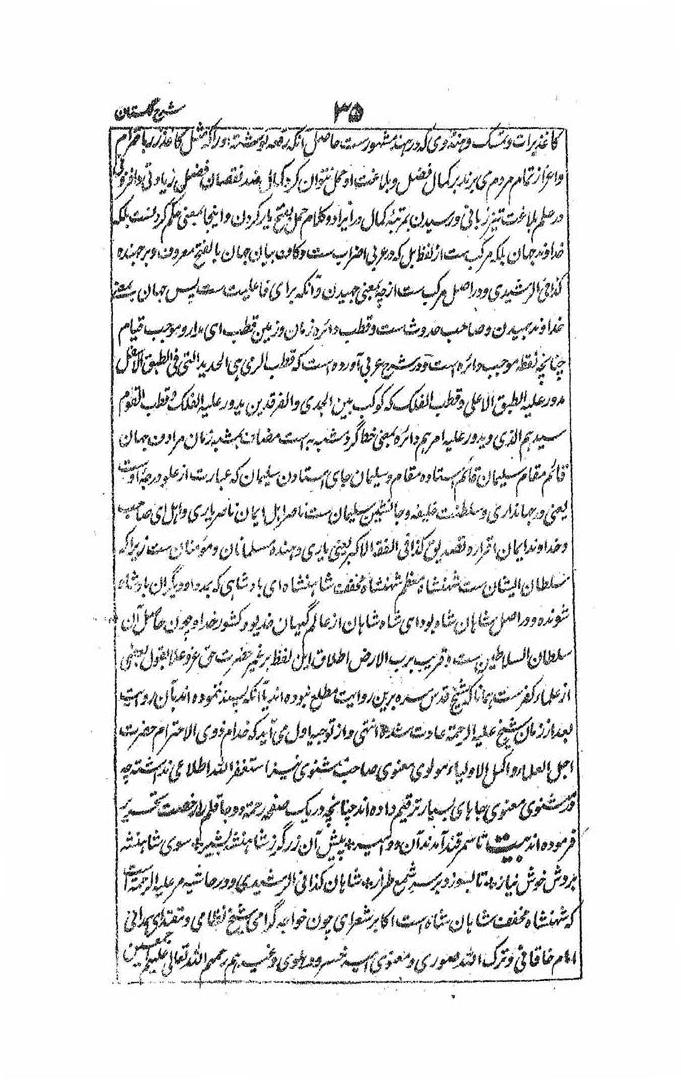 شرح گلستان
۳۵
کاغذ برات و تمسک و هنڈوی که در هند مشهورست حاصل آنکه رقعه نوشته او را که مثل کاغذ زر باحترام
و اعزاز تمام مردم می برند بر کمال فضل و بلاغت او حمل نتوان کرد کمال ضد نقصان فضل زیادتی و افزونی
در علم بلاغت تیز زبانی و رسیدن بمرتبۀ کمال در ایراد کلام حمل بفتح بار کردن و اینجا بمعنی حکم کردنست بلکه
خداوند جهان بلکه مرکب ست از لفظ بل که در عربی اضراب ست و کاف بیان جهان بالفتح معروف و برجهنده
کذا فی الرشیدی و در اصل مرکب ست از جه بمعنی جهیدن و آنکه برای فاعلیت ست پس جهان بمعنی
خداوند جهیدن و صاحب حدوث ست و قطب دائره زمان و زمین قطب ای مدار و موجب قیام
چنانچه نقطه موجب دائره است و در شرح عربی آورده است که قطب الرحی هی الحدید التی فی الطبق الاسفل
یدور علیه الطبق الاعلی و قطب الفلک که کوکب بین الجدی و الفرقدین یدور علیه الفلک و قطب القوم
سیدهم الذی یدور علیه امرهم دائره بمعنی خط گرد مشبه به است مضاف بمشبه زمان مرادف جهان
قائم مقام سلیمان قائم استاده مقام سلیمان جای استادن سلیمان که عبارت از علو درجۀ اوست
یعنی در جهانداری و سلطنت خلیفه و جانشین سلیمان ست ناصر اهل ایمان ناصر یاری و اهل ای صاحب
و خداوند ایمان اقرار و تصدیق کذا فی الفقه الاکبر یعنی یاری دهنده مسلمانان و مؤمنان ست زیرا که
سلطان ایشان ست شهنشاه معظم شهنشاه مخفف شاهنشاه ای بادشاهی که بمدد او دیگران بادشاه
شونده و در اصل شاهان شاه بود ای شاه شاهان از عالم گیهان خدیو و کشور خدا و چون حاصل آن
سلطان السلاطین ست و قریب برب الارض اطلاق این لفظ بر غیر حضرت حق عز و علا بقول بعضی
از علما کفرست همانا که شیخ قدس سره برین روایت مطلع نبوده اند یا آنکه پسند ننموده اند یا آن روایت
بعد از زمان شیخ علیه الرحمة حادث شده انتهی و از توجیه اول می آید که خدام ذوی الاحترام حضرت
اجل العلماء و اکمل الاولیاء مولوی معنوی صاحب مثنوی نیز استغفر الله اطلاعی نداشته چه
در مثنوی معنوی بجاهای بسیار ترقیم داده اند چنانچه در یک صفحه رحمة دو جا قلم را رخصت تحریر
فرموده اند بیت تا سمرقند آمدند آن دو امیر * پیش آن زرگر ز شاهنشه بشیر * سوی شاهنشه
بروش خوش نیاز * تا بسوزد بر سر شمع طراز * شاهان کذا فی الرشیدی و در حاشیه میر علیه الرحمة است
که شهنشاه مخفف شاهان شاه است اکابر شعرای چون خواجه گرامی شیخ نظامی و مقتدای همدانی
امام خاقانی و ترک الله صوری و معنوی امیر خسرو دهلوی و غیرهم رحمهم الله تعالی علیهم اجمعین